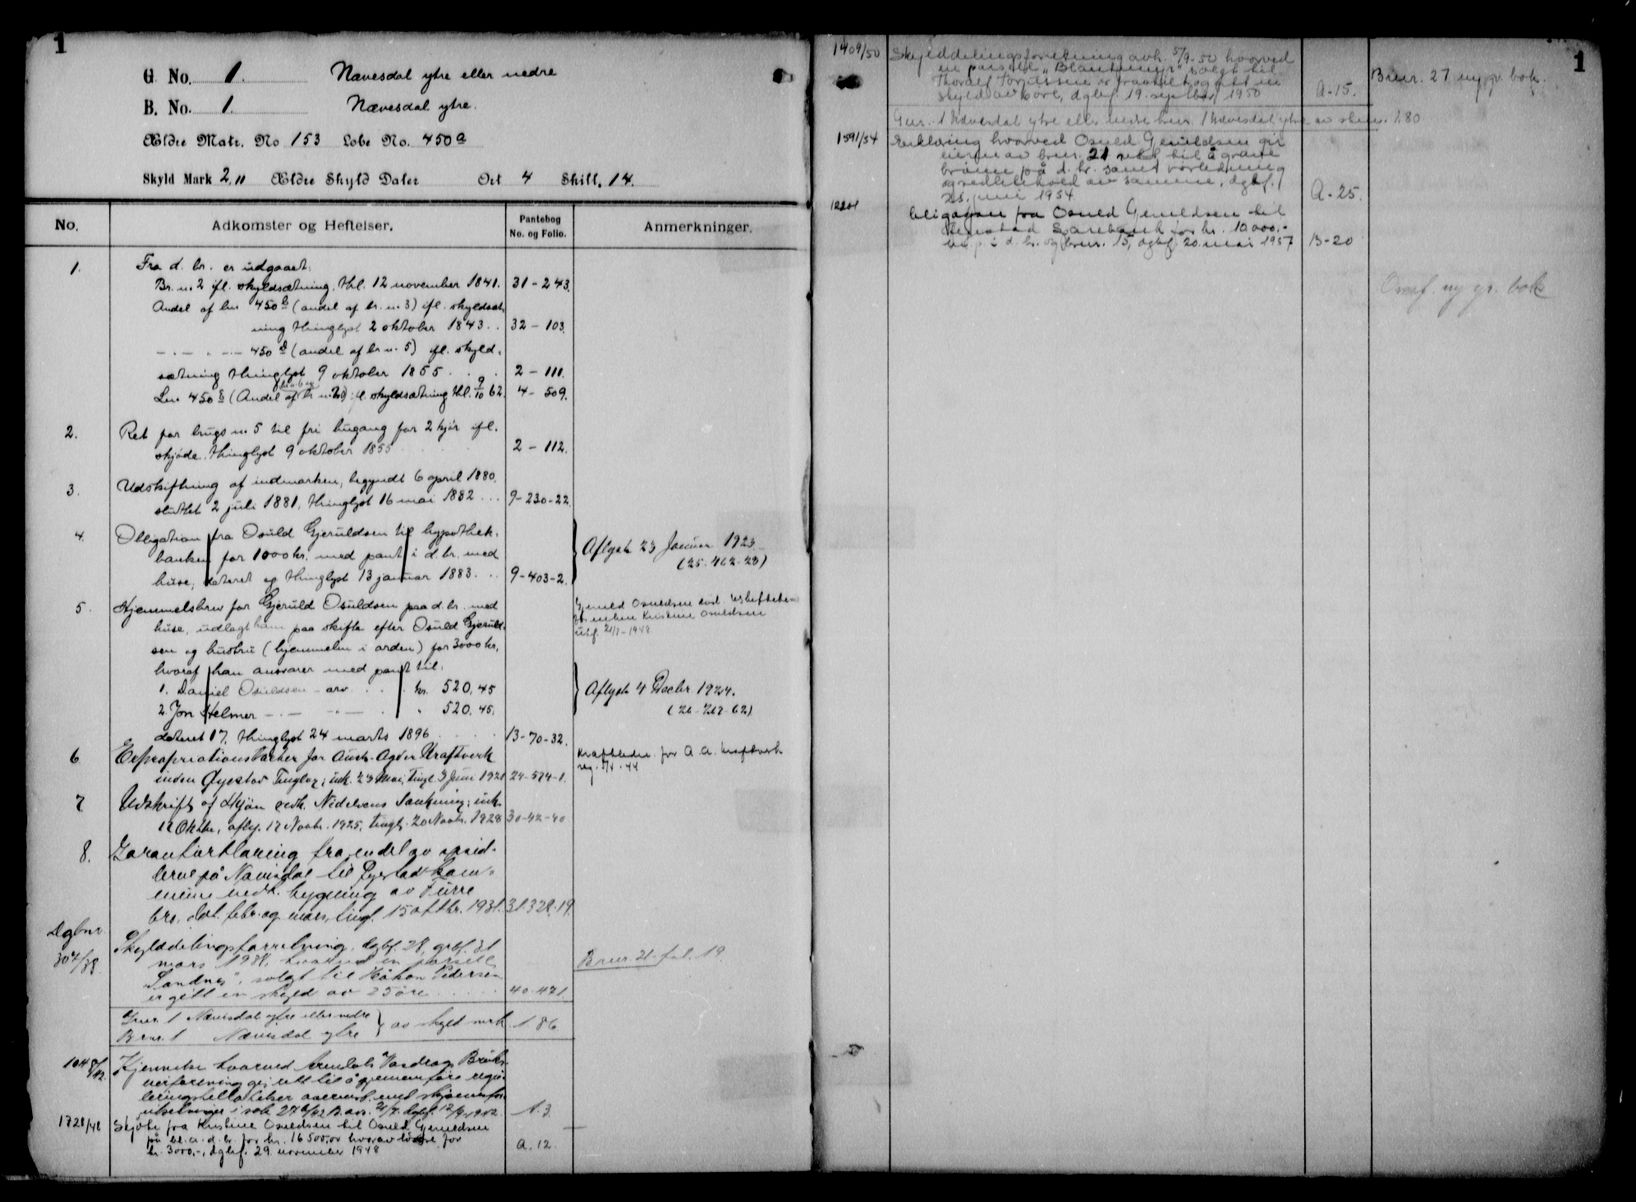 1
G No. 1. Nævesdal ytre eller nedre
B. No. 1. Nævesdal ytre.
Ældre Matr. No 153 Løbe No. 450 a
Skyld Mark 2,11 Ældre Skyld Daler Ort 4 Skill. 14.
No. Adkomster og Heftelser. Pantebog No. og Folio. Anmerkninger.
1. Fra d. br. er udgaaet:
Br. n. 2 ifl. skyldsætning, thl. 12 november 1841. 31-243.
Andel af lnr 450 b (andel af br. n. 3) ifl. skyldsæt
ning thinglyst 2 oktober 1843 . . 32-103.
— . — . — 450 d (andel af br. n. 5) ifl. skyld.
sætning thinglyst 9 oktober 1855 . . . 2-111.
Lnr 450 (Andel af br. n. ) ifl. skyldsætning thl. 9/10 62. 4-509.
2. Ret for brugs n. 5 til fri hugang for 2 kjør ifl.
skjøde, thinglyst 9 oktober 1855 2-112.
3. Udskiftning af indmarken, begyndt 6 april 1880.
sluttet 2 juli 1881, thinglyst 16 mai 1882 ... 9-230-22
4. Obligation fra Osuld Gjeruldsen til hypothek-
banken for 1000 kr. med pant i d. br. med
huse, dateret og thinglyst 13 januar 1883. .. 9-403-2.
Aflyst 23 Januar 1923
(25-462-23)
5. Hjemmelsbrev for Gjeruld Osuldsen paa d. br. med
huse, udlagt ham paa skifte efter Osuld Gjeruld-
sen og hustru (hjemmelen i orden) for 3000 kr.,
hvoraf han ansvarer med pant til:
1. Daniel Osuldsen - arv . . . kr. 520,45
2. Jon Helmer — . — " — . " 520,45.
dateret 17, thinglyst 24 marts 1896 . . . . 13-70-32.
Gjeruld Osuldsen død.
enken Kristine Osuldsen
1948
Aflyst 4 Decbr 1924.
(26-262-62)
6 Expropriationsskjøn for Aust-Agder Kraftverk
inden Øyestad Tinglag; ink. 23 Mai, tingl. 3 Juni 1921 24-574-1.
Kraftledn. for A. A. kraftverk
7 Udskrift af skjøn vedk. Nidelvens Sænkning; ink.
12 Oktbr., afhj. 17 Novbr. 1925, tingl. 20 Novbr. 1928 30-42-40
8. Garantierklæring fra endel av opsid-
derne på Nævesdal til Øyestad kom-
mune vedk. bygning av
bro, dat. febr. og mars, tingl. 15 oktbr. 1931. 31.328.19
Dgbnr
307/38 Skylddelingsforretning, dgbf. 28, grbf. 31
mars 1938, hvorved en parsell
"Sandnes", solgt til Håkon Pedersen
er gitt en skyld av 25 øre . . . . . 40-471
Bnr. 21 fol. 19.
Gnr. 1 Nævesdal ytre eller nedre
Bnr. 1 Nævesdal ytre } av skyld mrk. 1.86
Kjennelse hvorved Arendals Vasdrags Brugs-
eierforening gis rett til å gjennemføre regu-
leringstillatelser
A.3
1721/48 Skjøte fra Kristine Osuldsen til Osuld Gjeruldsen
på bl. a. d. br. for kr. 16500,00 hvorav løsøre for
kr. 3000,-, dgbf. 29 november 1948 A.12.
1
1409/50 Skylddelingsforretning avh. 5/9.50 hvorved
en parsell "Blautmyr" solgt til
Thoralf er fraskilt og gitt en
skyld av 6 øre, dgbf. 19. septbr 1950 A-15.
Bnr. 27 ny gr. bok.
Gnr. 1 Nævesdal ytre eller nedre bnr. 1 Nævesdal ytre av skmrk. 1.80
1591/54 Erklæring hvorved Osuld Gjeruldsen gir
eieren av bnr. 21 rett til å grave
brønn på d. br. samt vannledning
og vedlikehold av samme, dgbf.
25. juni 1954 A-25.
Obligasjon fra Osuld Gjeruldsen til
Sparebank for kr. 10000,-
i d. br. og bnr. 15, dgbf. 20. mai 1957 B-20
Overf. ny gr. bok